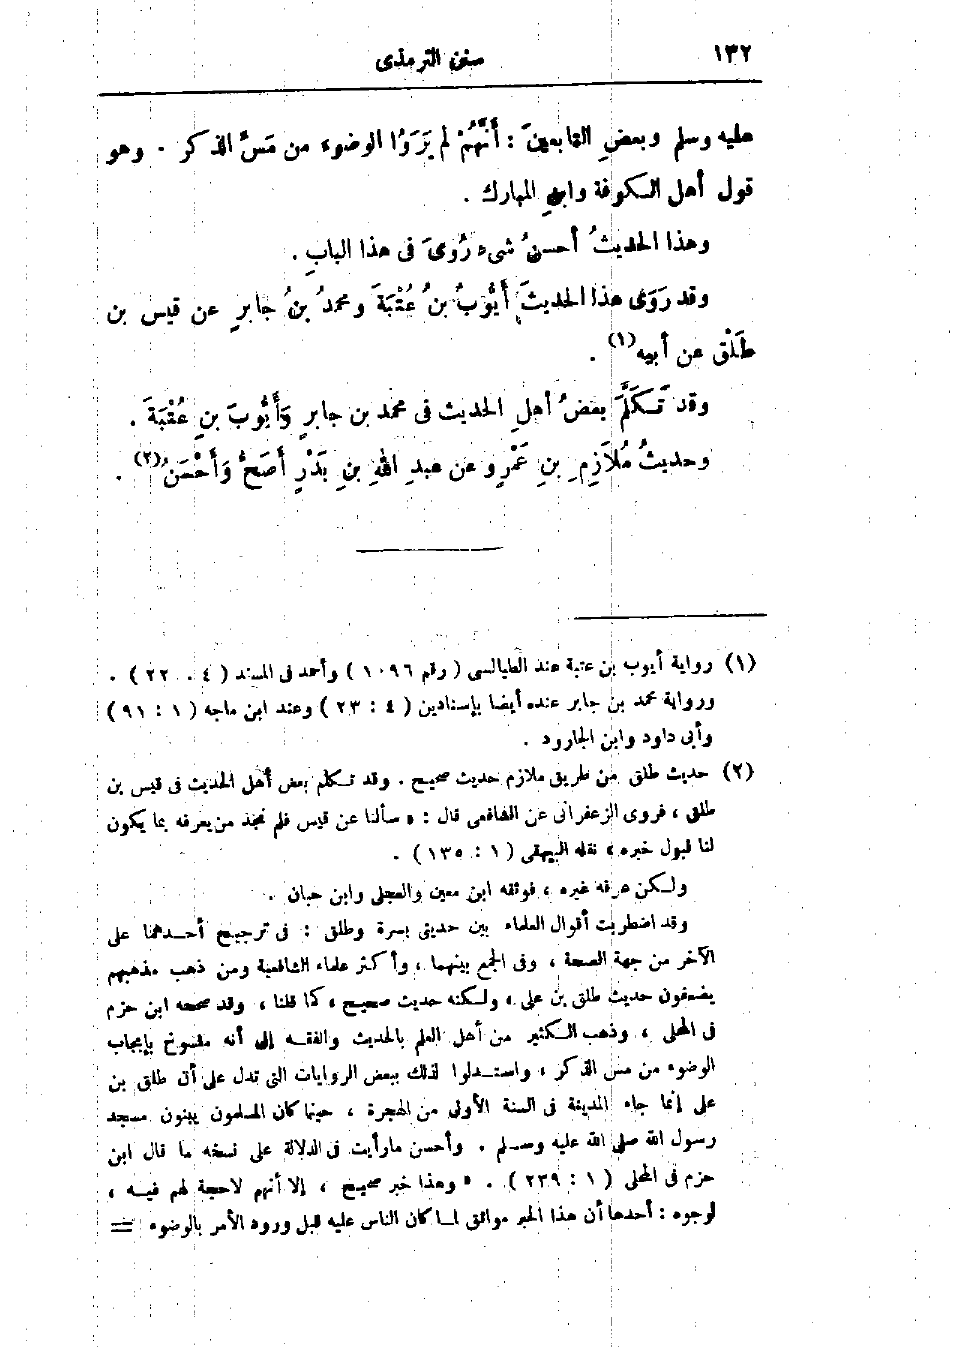 ١٣٢ سنن الترمذى
عليه وسلم وبعضِ التابعينَ : أَنَّهُمْ لم يَرَوُا الوضوء من مَسِّ الذكر . وهو
قول أهل الكوفة وابنِ المبارك .
وهذا الحديثُ أحسنُ شىء رُوِىَ فى هذا البابِ .
وقد رَوَى هذا الحديثَ أَيُّوبُ بنُ عُتْبَةَ ومحمدُ بنُ جابرٍ عن قيس بن
طَلْقٍ عن أبيه (١) .
وقد تَكَلَّمَ بعضُ أهلِ الحديث فى محمد بن جابرٍ وَأَيُّوبَ بنِ عُتْبَةَ .
وحديثُ مُلَازِمِ بنِ عَمْرٍو عن عبدِ اللهِ بنِ بَدْرٍ أَصَحُّ وَأَحْسَنُ (٢) .
(١) رواية أيوب بن عتبة عند الطيالسى ( رقم ١٠٩٦ ) وأحمد فى المسند ( ٤ . ٢٢ ) .
ورواية محمد بن جابر عنده أيضا بإسنادين ( ٤ : ٢٣ ) وعند ابن ماجه ( ١ : ٩١ )
وأبى داود وابن الجارود .
(٢) حديث طلق من طريق ملازم حديث صحيح . وقد تكلم بعض أهل الحديث فى قيس بن
طلق ، فروى الزعفرانى عن الشافعى قال : « سألنا عن قيس فلم نجد من يعرفه بما يكون
لنا قبول خبره » نقله البيهقى ( ١ : ١٣٥ ) .
ولكن عرفه غيره ، فوثقه ابن معين والعجلى وابن حبان .
وقد اضطربت أقوال العلماء بين حديثى بسرة وطلق : فى ترجيح أحدهما على
الآخر من جهة الصحة ، وفى الجمع بينهما ، وأكثر علماء الشافعية ومن ذهب مذهبهم
يضعفون حديث طلق بن على ، ولكنه حديث صحيح ، كما قلنا ، وقد صححه ابن حزم
فى المحلى ، وذهب الكثير من أهل العلم بالحديث والفقه إلى أنه منسوخ بإيجاب
الوضوء من مس الذكر ، واستدلوا لذلك ببعض الروايات التى تدل على أن طلق بن
على إنما جاء المدينة فى السنة الأولى من الهجرة ، حينما كان المسلمون يبنون مسجد
رسول الله صلى الله عليه وسلم . وأحسن ما رأيت فى الدلالة على نسخه ما قال ابن
حزم فى المحلى ( ١ : ٢٣٩ ) . « وهذا خبر صحيح ، إلا أنهم لا حجة لهم فيه ،
لوجوه : أحدها أن هذا الخبر موافق لما كان الناس عليه قبل ورود الأمر بالوضوء =